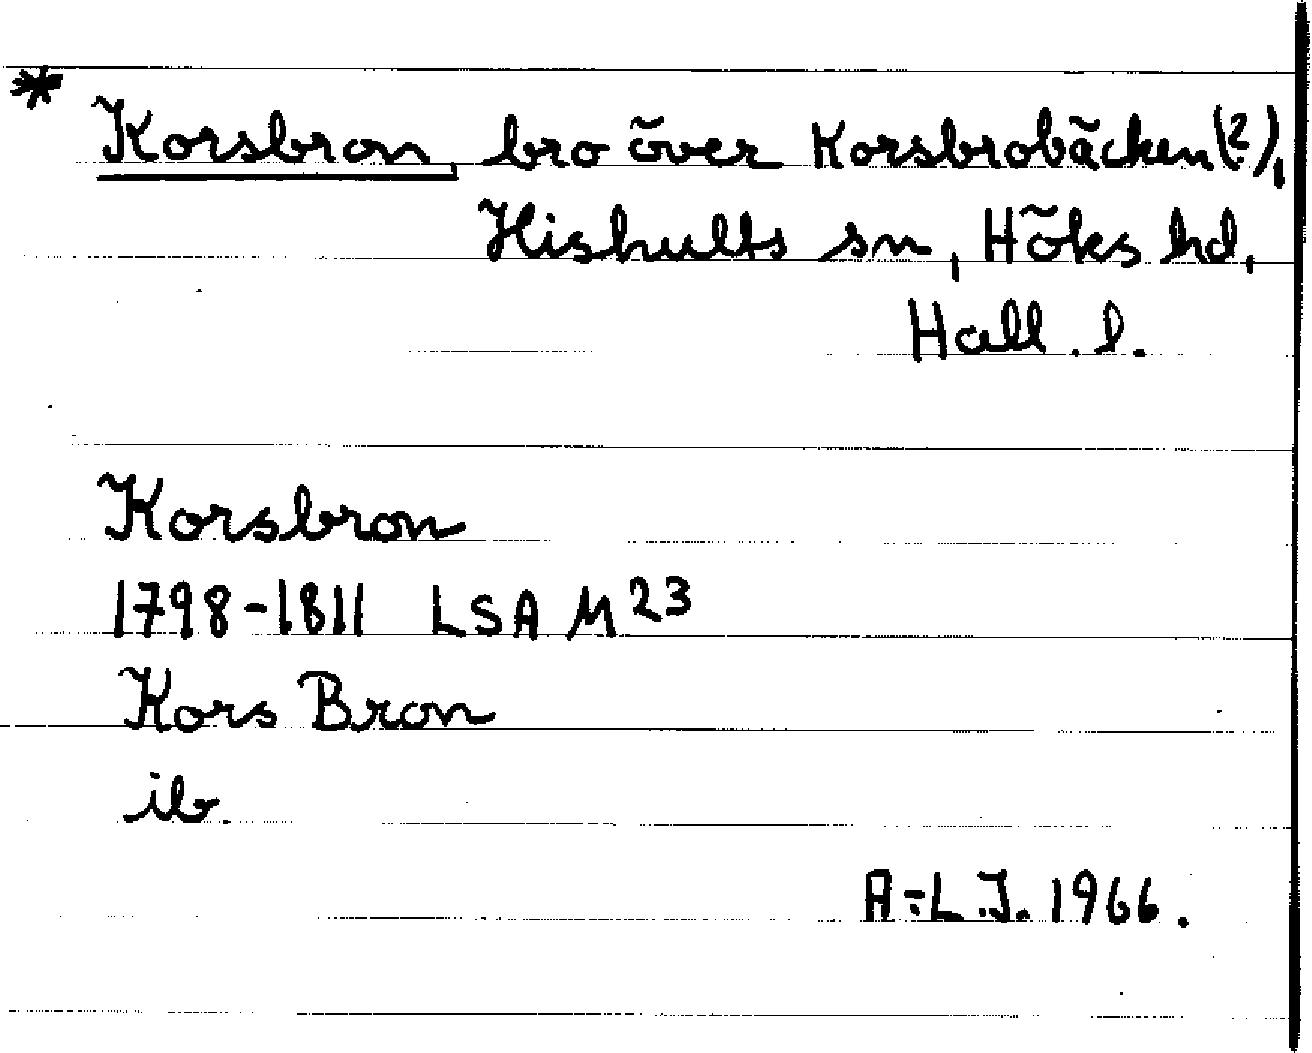 * Korsbron, bro över Korsbrobäcken (?),
Hishults sn, Höks hd,
Hall. l.
Korsbron
1798-1811 LSA M 23
Kors Bron
ib.
A-L.J. 1966.